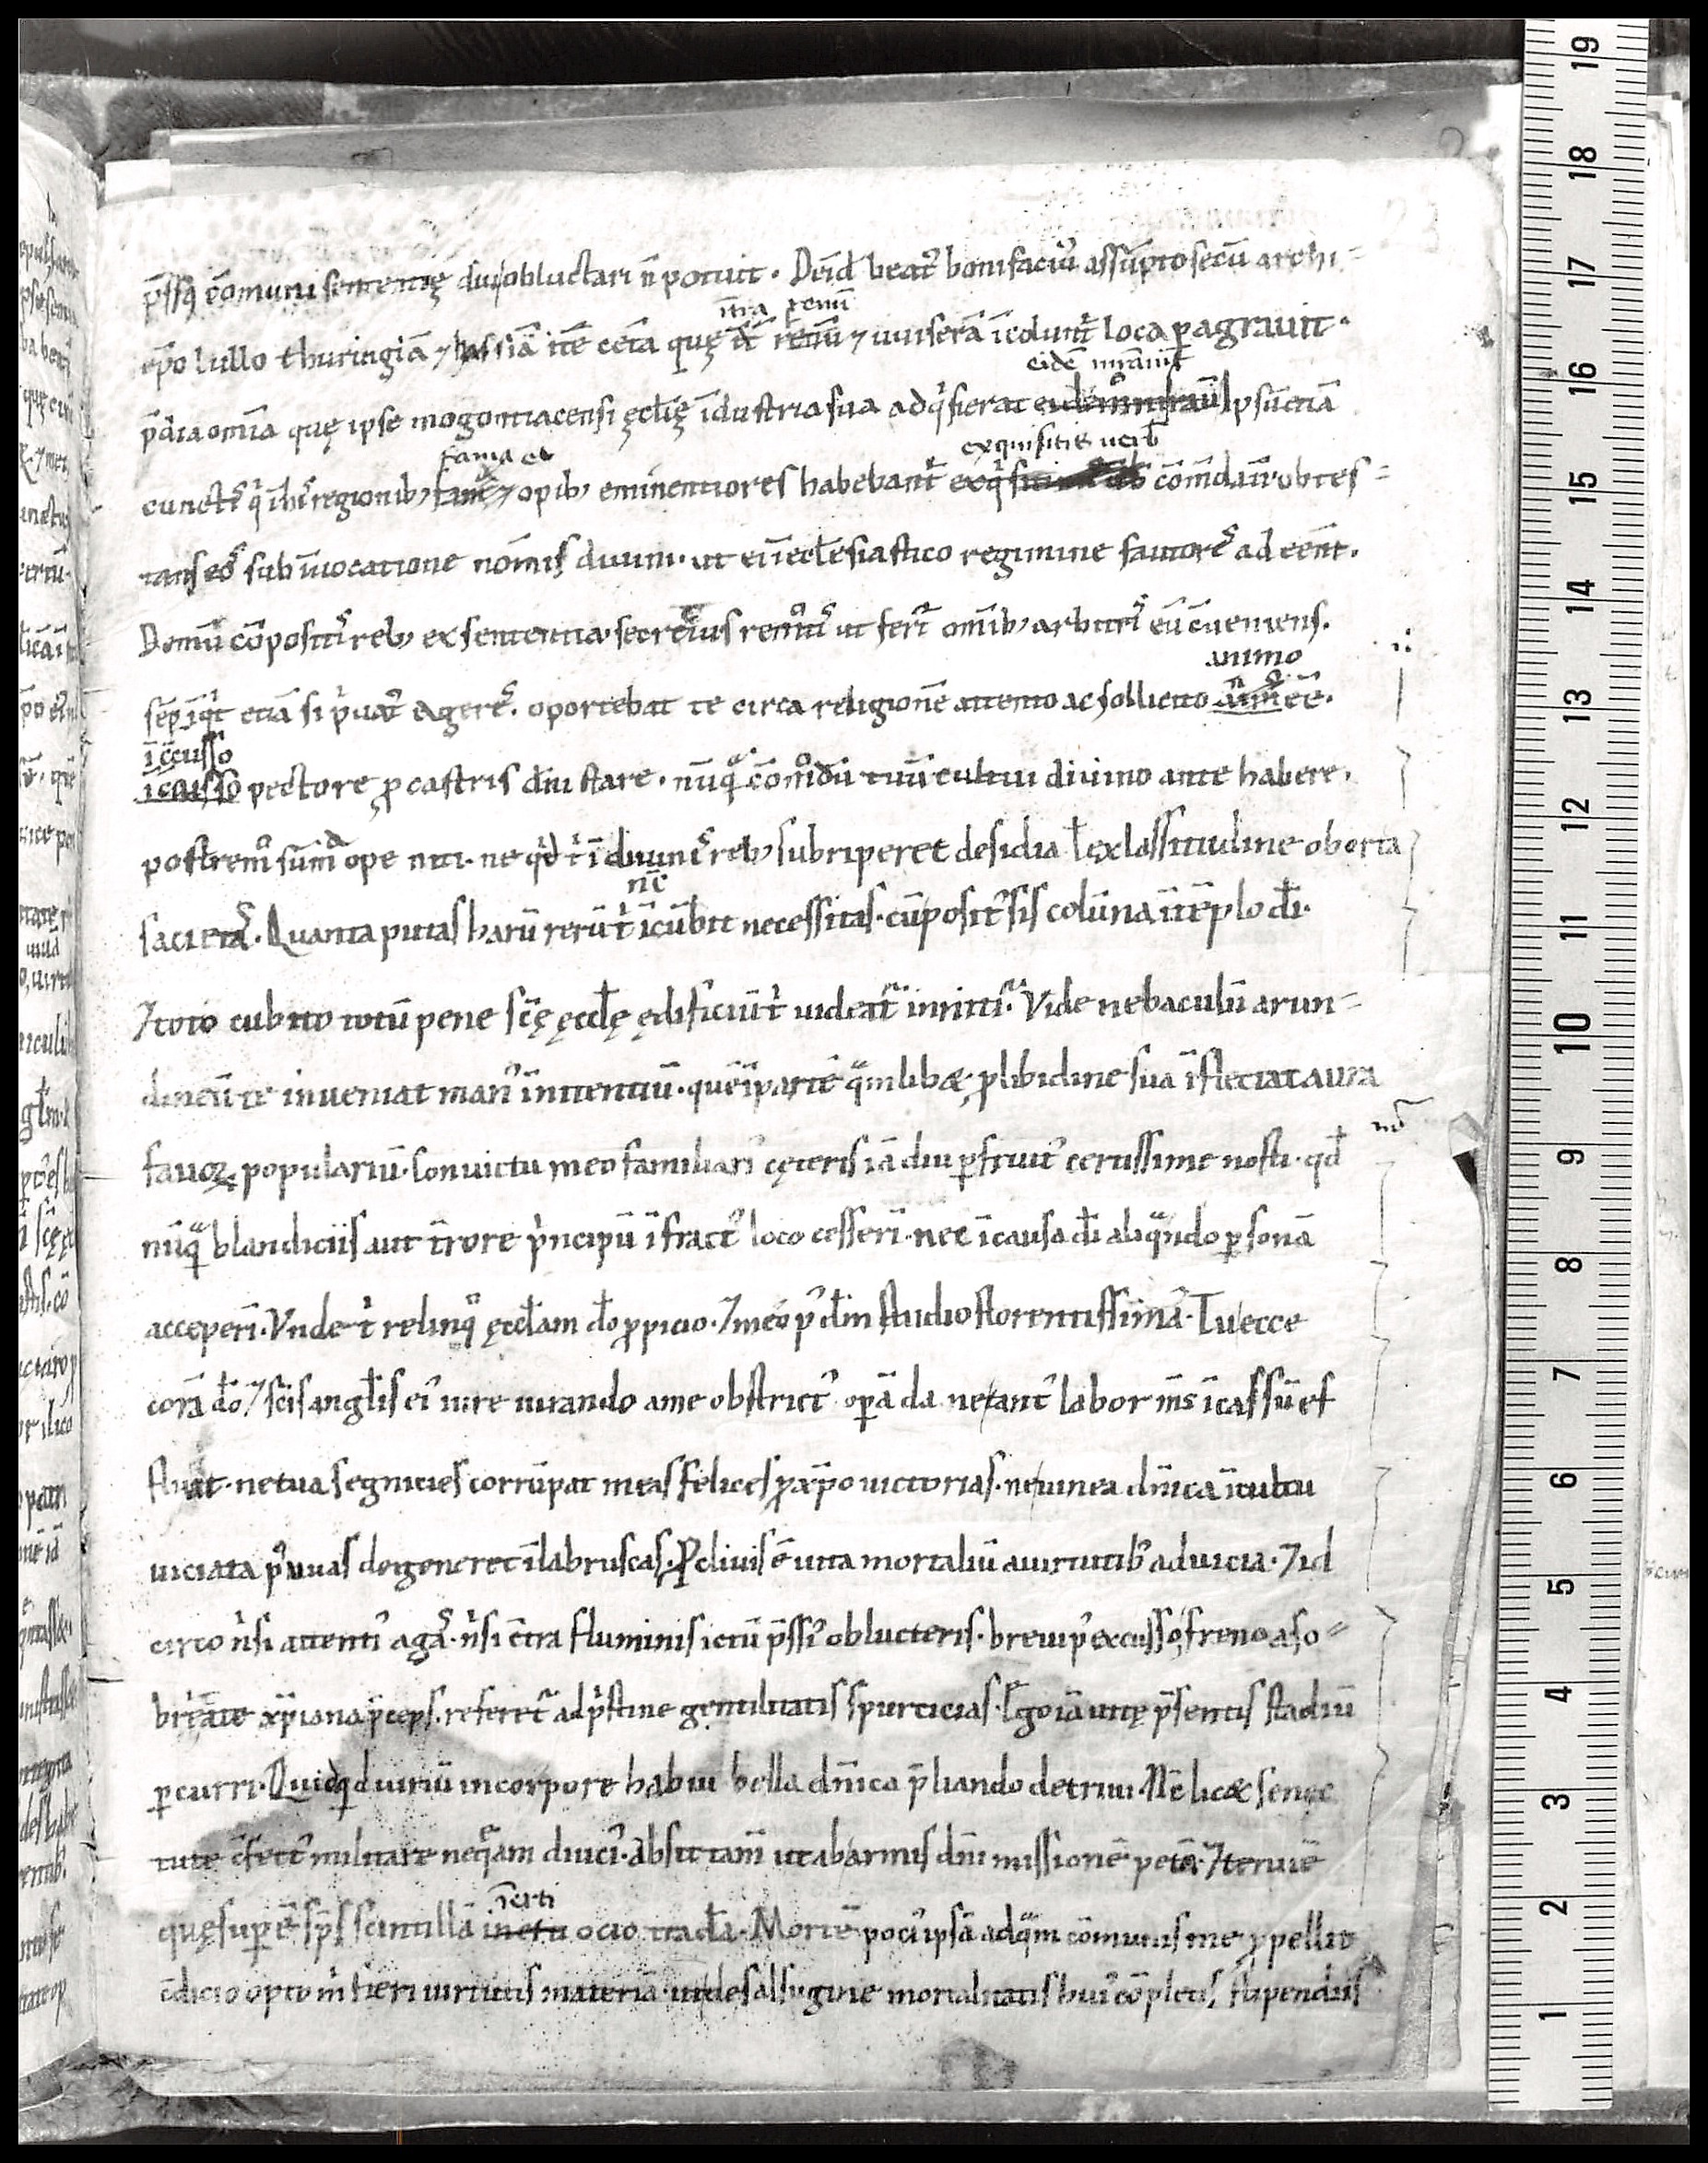 p̄ssq; cōmuni sententię diu obluctari n̄ potuit. Deīd beat᾿ bonifaciu᾿ assūpto secū archi-
itra renū
epō lullo thuringiā ⁊ hassiā itē cet̄a quę it̄ renū ⁊ uuiserā īcolunt᾿ loca pagrauit.
eidē
p̄dia om̄ia quę ipse mogontiacensi ęctię īdustria sua adq᾿sierat Ipsū etiā
fama et
exquisitis uerb̄
cunct᾿ q᾿ ī his regionib; fam̄ ⁊ opib; eminentiores habebant᾿ com̄dauit obtes-
tans eos sub īuocatione nom̄is diuini. ut ei ī ecclesiastico regimine fautores adeent.
Domū cōposit᾿ reb; ex sententia secreti᾿ remot᾿ ut fert᾿ om̄ib; arbitr᾿ eū cueniens.
animo
semp inq᾿t etiā si p᾿uat᾿ ageres. oportebat te circa religionē attento ac sollicito eē.
īccusso
īcusso pectore p castris dn̄i stare. nūq̄ com̄odū tuū cultui diuino ante habere.
postrem᾿ sūma ope niti. ne q᾿d t᾿ ī diuin᾿ reb; subriperet desidia ł ex lassitudine oborta
nc̄
sacietas. Quanta putas harū rerū t᾿ īcūbit necessitas. cū posit᾿ sis colūna ī tēplo dī.
⁊ toto cubito totū pene scę ęcclę ędificiū t᾿ uideat᾿ inniti. Vide ne baculū arun-
dineū te inueniat man᾿ īnitentiū. quē ī partē q̄mlibet p libidine sua īflectat aura
fauoris popularium. Conuictu meo familiari᾿ cęteris iā diu pfruit᾿ certissime nosti. qd̄
nūq̄ blandiciis aut t̄rore p᾿ncipū īfract᾿ loco cesseri. nec ī causa dī aliq̄ndo psonā
acceperi. Vnde t᾿ relinq᾿ ęcclam dō ppicio. ⁊ meo p᾿ dm̄ studio florentissimā. Tu ecce
corā dō ⁊ scīs anglis ei᾿ iure iurando a me obstrict᾿ opā da ne tant᾿ labor ms̄ īcassū ef
fluat. ne tua segnicies corrūpat meas felices p xp̄o uictorias. ne uinea dn̄ica ī cultu
uiciata p᾿ uuas degeneret ī labruscas. Pcliuis ē uita mortaliū a uirtutib᾿ ad uicia. ⁊ id
circo n᾿si attenti᾿ agas. n᾿si c̄tra fluminis ictū p̄ssi᾿ oblucteris. breui p᾿ excusso freno a so-
brietate xp̄iana p̄ceps. referet᾿ ad p᾿stine gentilitatis spurcicias. Ego iā uitę p̄sentis stadiū
pcurri. Quicq̄d uiriū in corpore habui bella dn̄ica p̄liando detriui. Nec licet senec
tute c̄fect᾿ militare neq̄am diuci᾿. absit tam̄ ut ab armis dn̄i missionē petā. ⁊ teruiē
īerti
quę supē sp̄s scintillā inetu ocio tradā. Mortē poci᾿ ipsā ad q̄m cōmunis me ppellit
c̄dicio opto m᾿ fieri uirtutis materiā. ut de salsugine mortalitatis hui᾿ cōpletis stipendiis